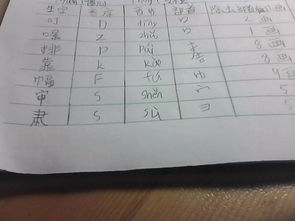 生字 音序 音节 部首 除去部首几画
叮 D dīng 口 2画
嘱 Z zhǔ 口
排 P pái 扌 8画
靠 K kào 8画
幅 F fú 巾 9画
审 S shěn 宀 5
肃 S sù 彐 5